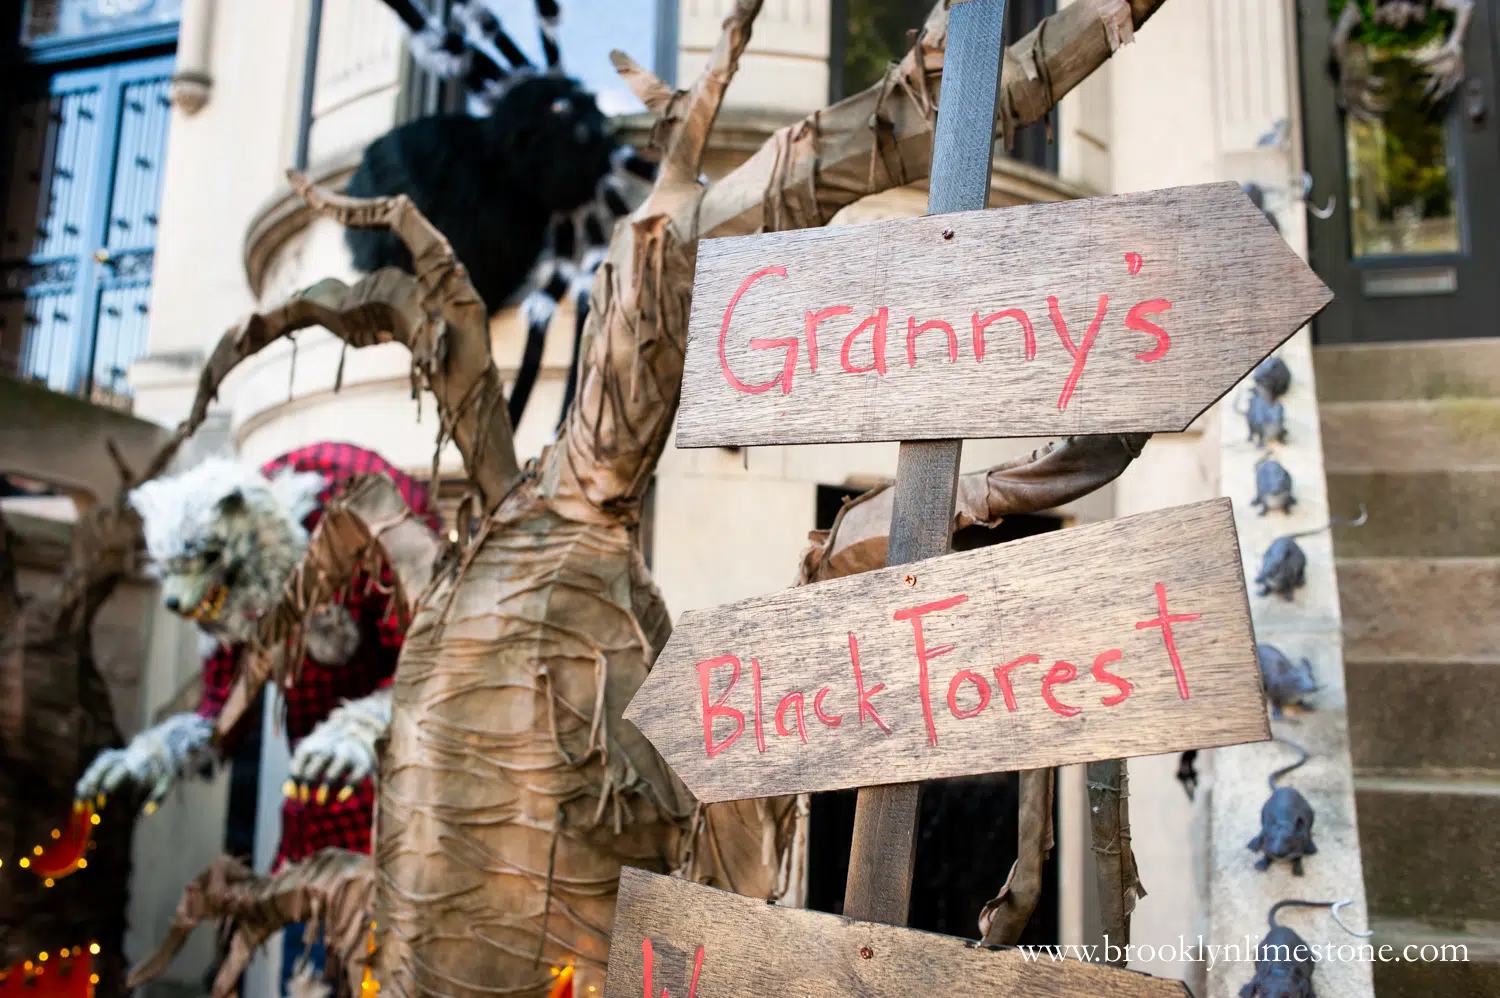 Granny's
Black Forest
www.brooklynlimestone.com